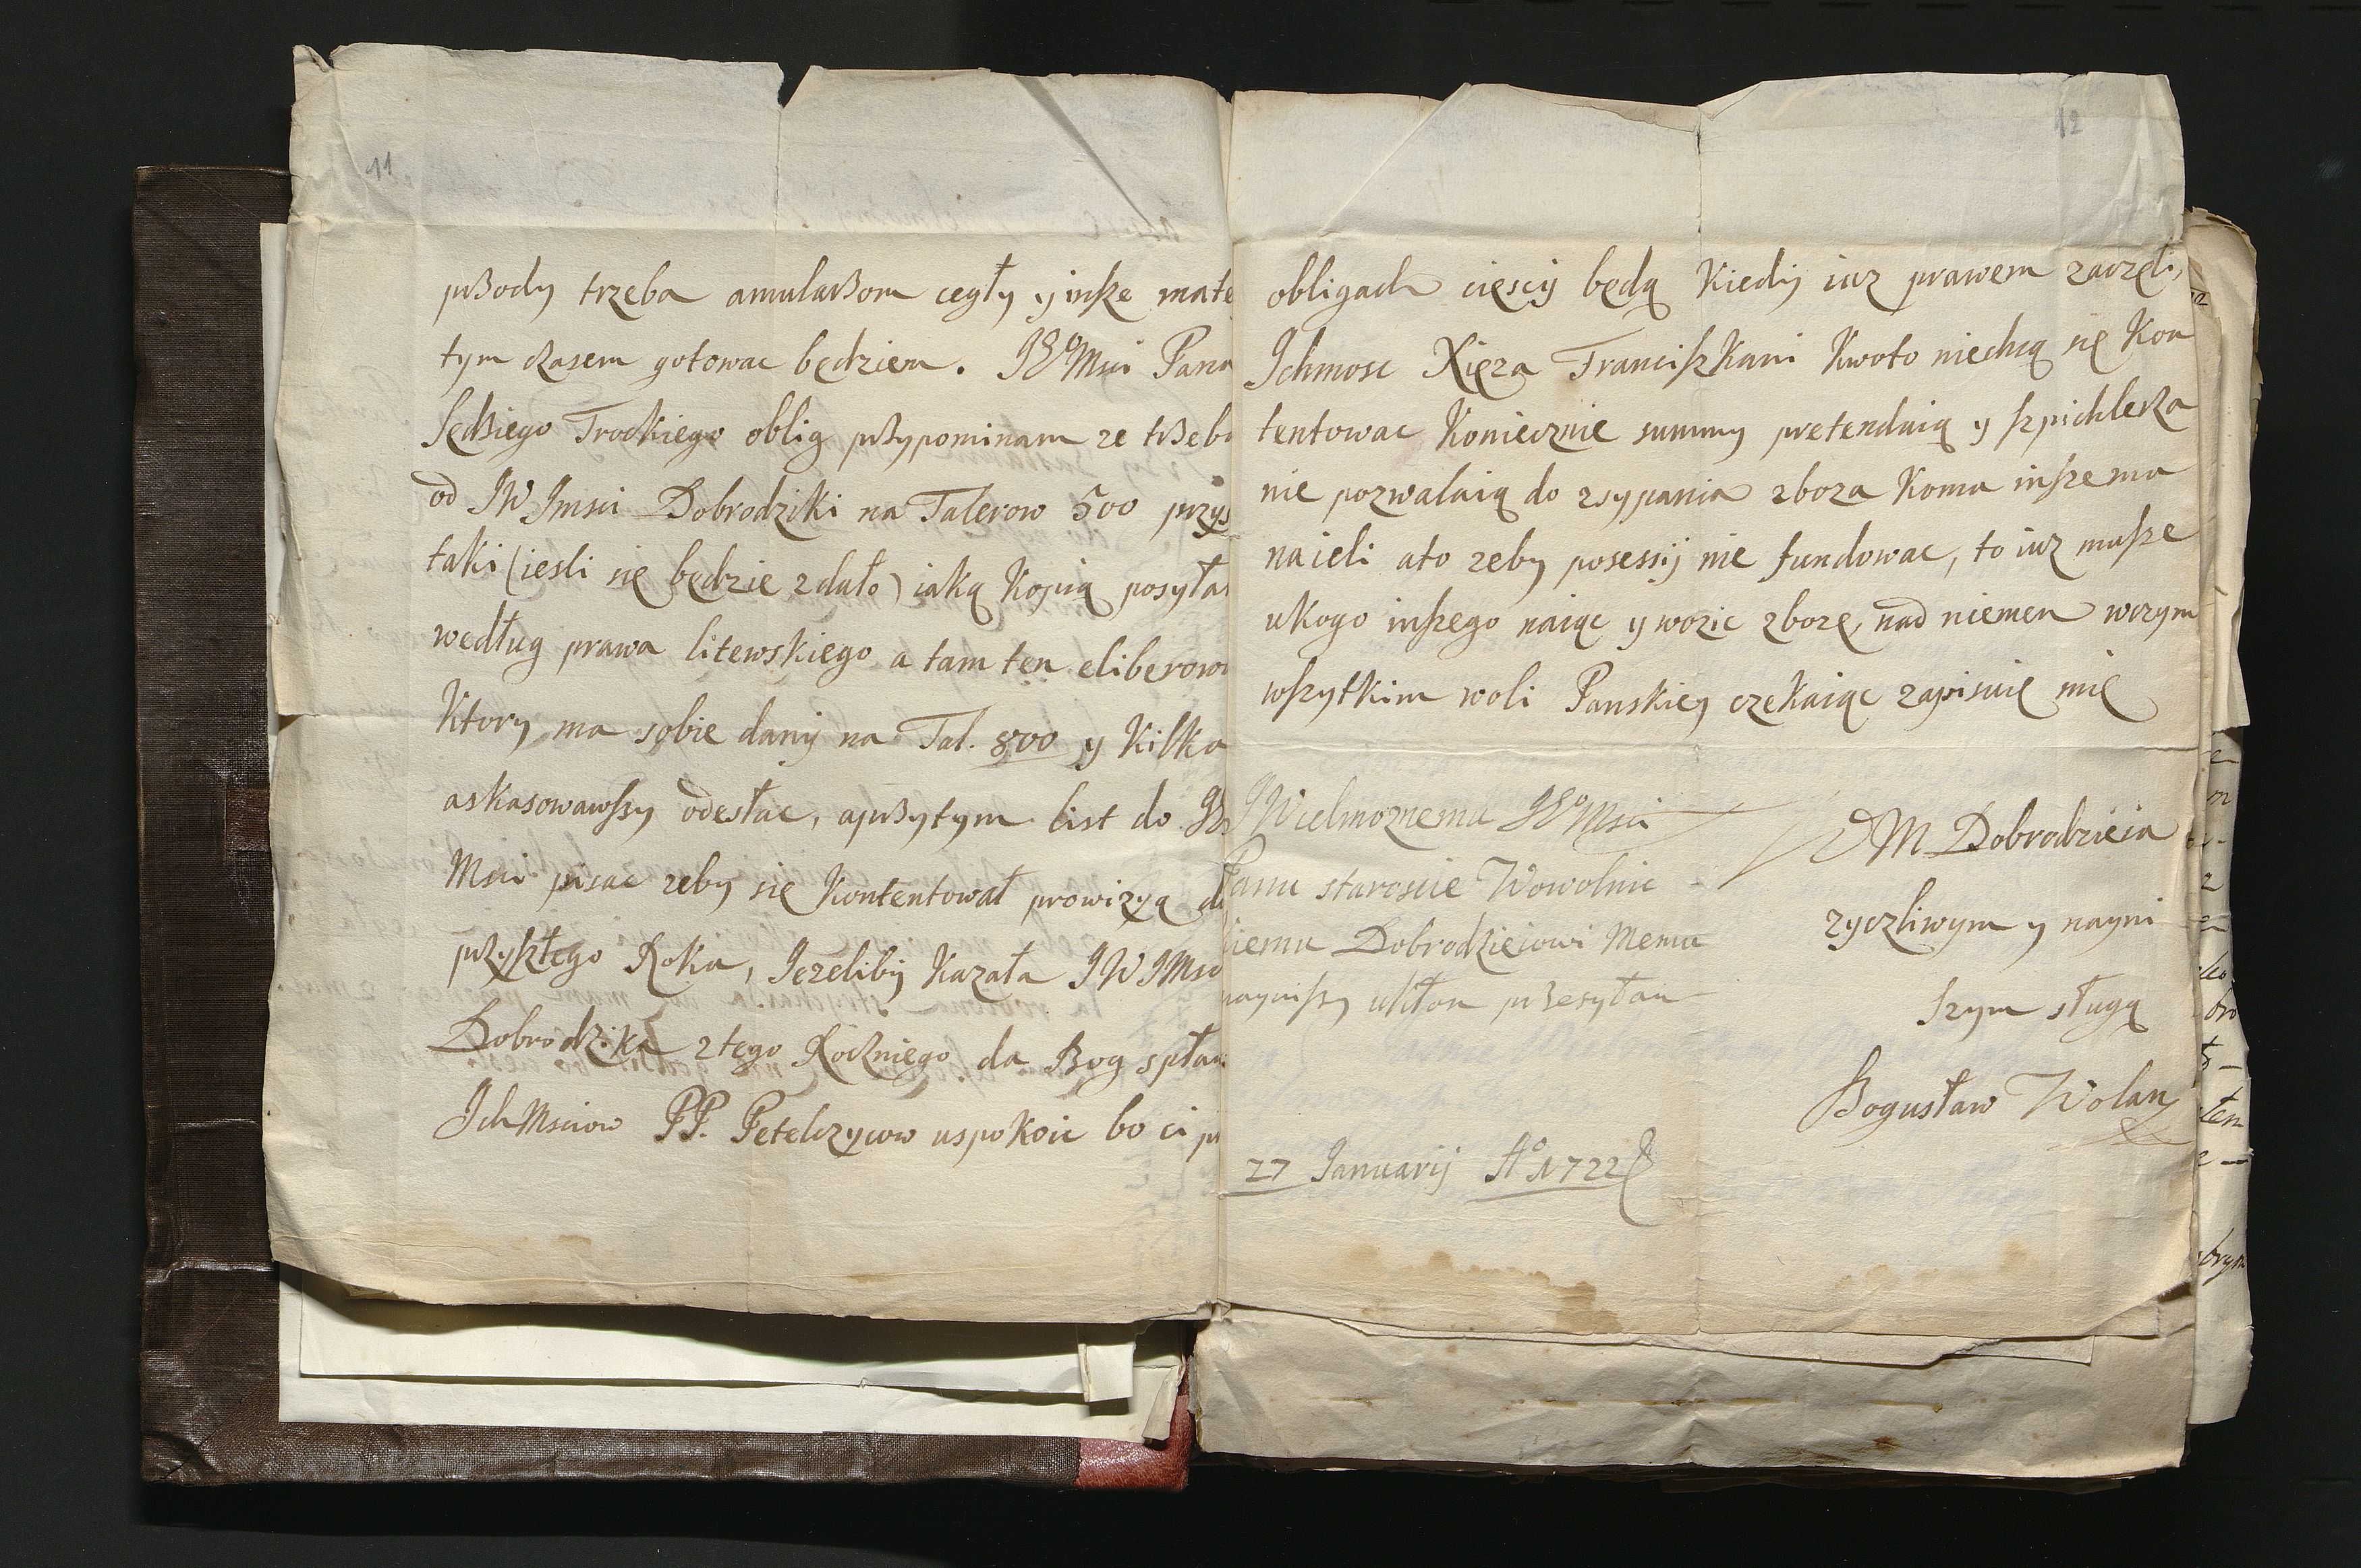 11
przody trzeba amularzom cegły y insze mate
tym czasem gotowac będziem. JEo Msci Pana
Sędziego Trockiego oblig przypominam ze trzeba
od JW Jmsci Dobrodziki na Talerow 500 przys
taki (iesli się będzie zdało) iaką kopią posyłam
według prawa litewskiego a tam ten eliberow
Ktory ma sobie dany na Tal. 800 y kilka
askasowawszy odesłac, aprzytym list do
Msci pisac zeby się kontentował prowizyą do
przyszłego Roku, Jezeliby kazała JW JMsc
Dobrodzika z tego Roczniego da Bog spław
Ich Msciow PP. Petelczycow uspokoic bo ci p
12
obligach cięscy będą kiedy iuz prawem zaczęli,
Ichmosc Xięza Franciszkani kwoto niechcą się kon
tentowac koniecznie summy pretenduią y szpichlerza
nie pozwalaią do zsypania zboza komu inszemu
naieli ato zeby posessij nie fundowac, to iuz musze
ukogo inszego naiąc y wozic zboze, nad niemen wczym
wszytkim woli Panskiey czekaiąc zapisuię mię
JWielmoznemu JEo Msci
Panu staroscie Wowolnic
kiemu Dobrodzieiowi Memu
nayniszy ukłon przesyłam
WM Dobrodzieia
zyczliwym y nayni
szym sługą
Bogusław Wolan
27 Januarij Ao 1722